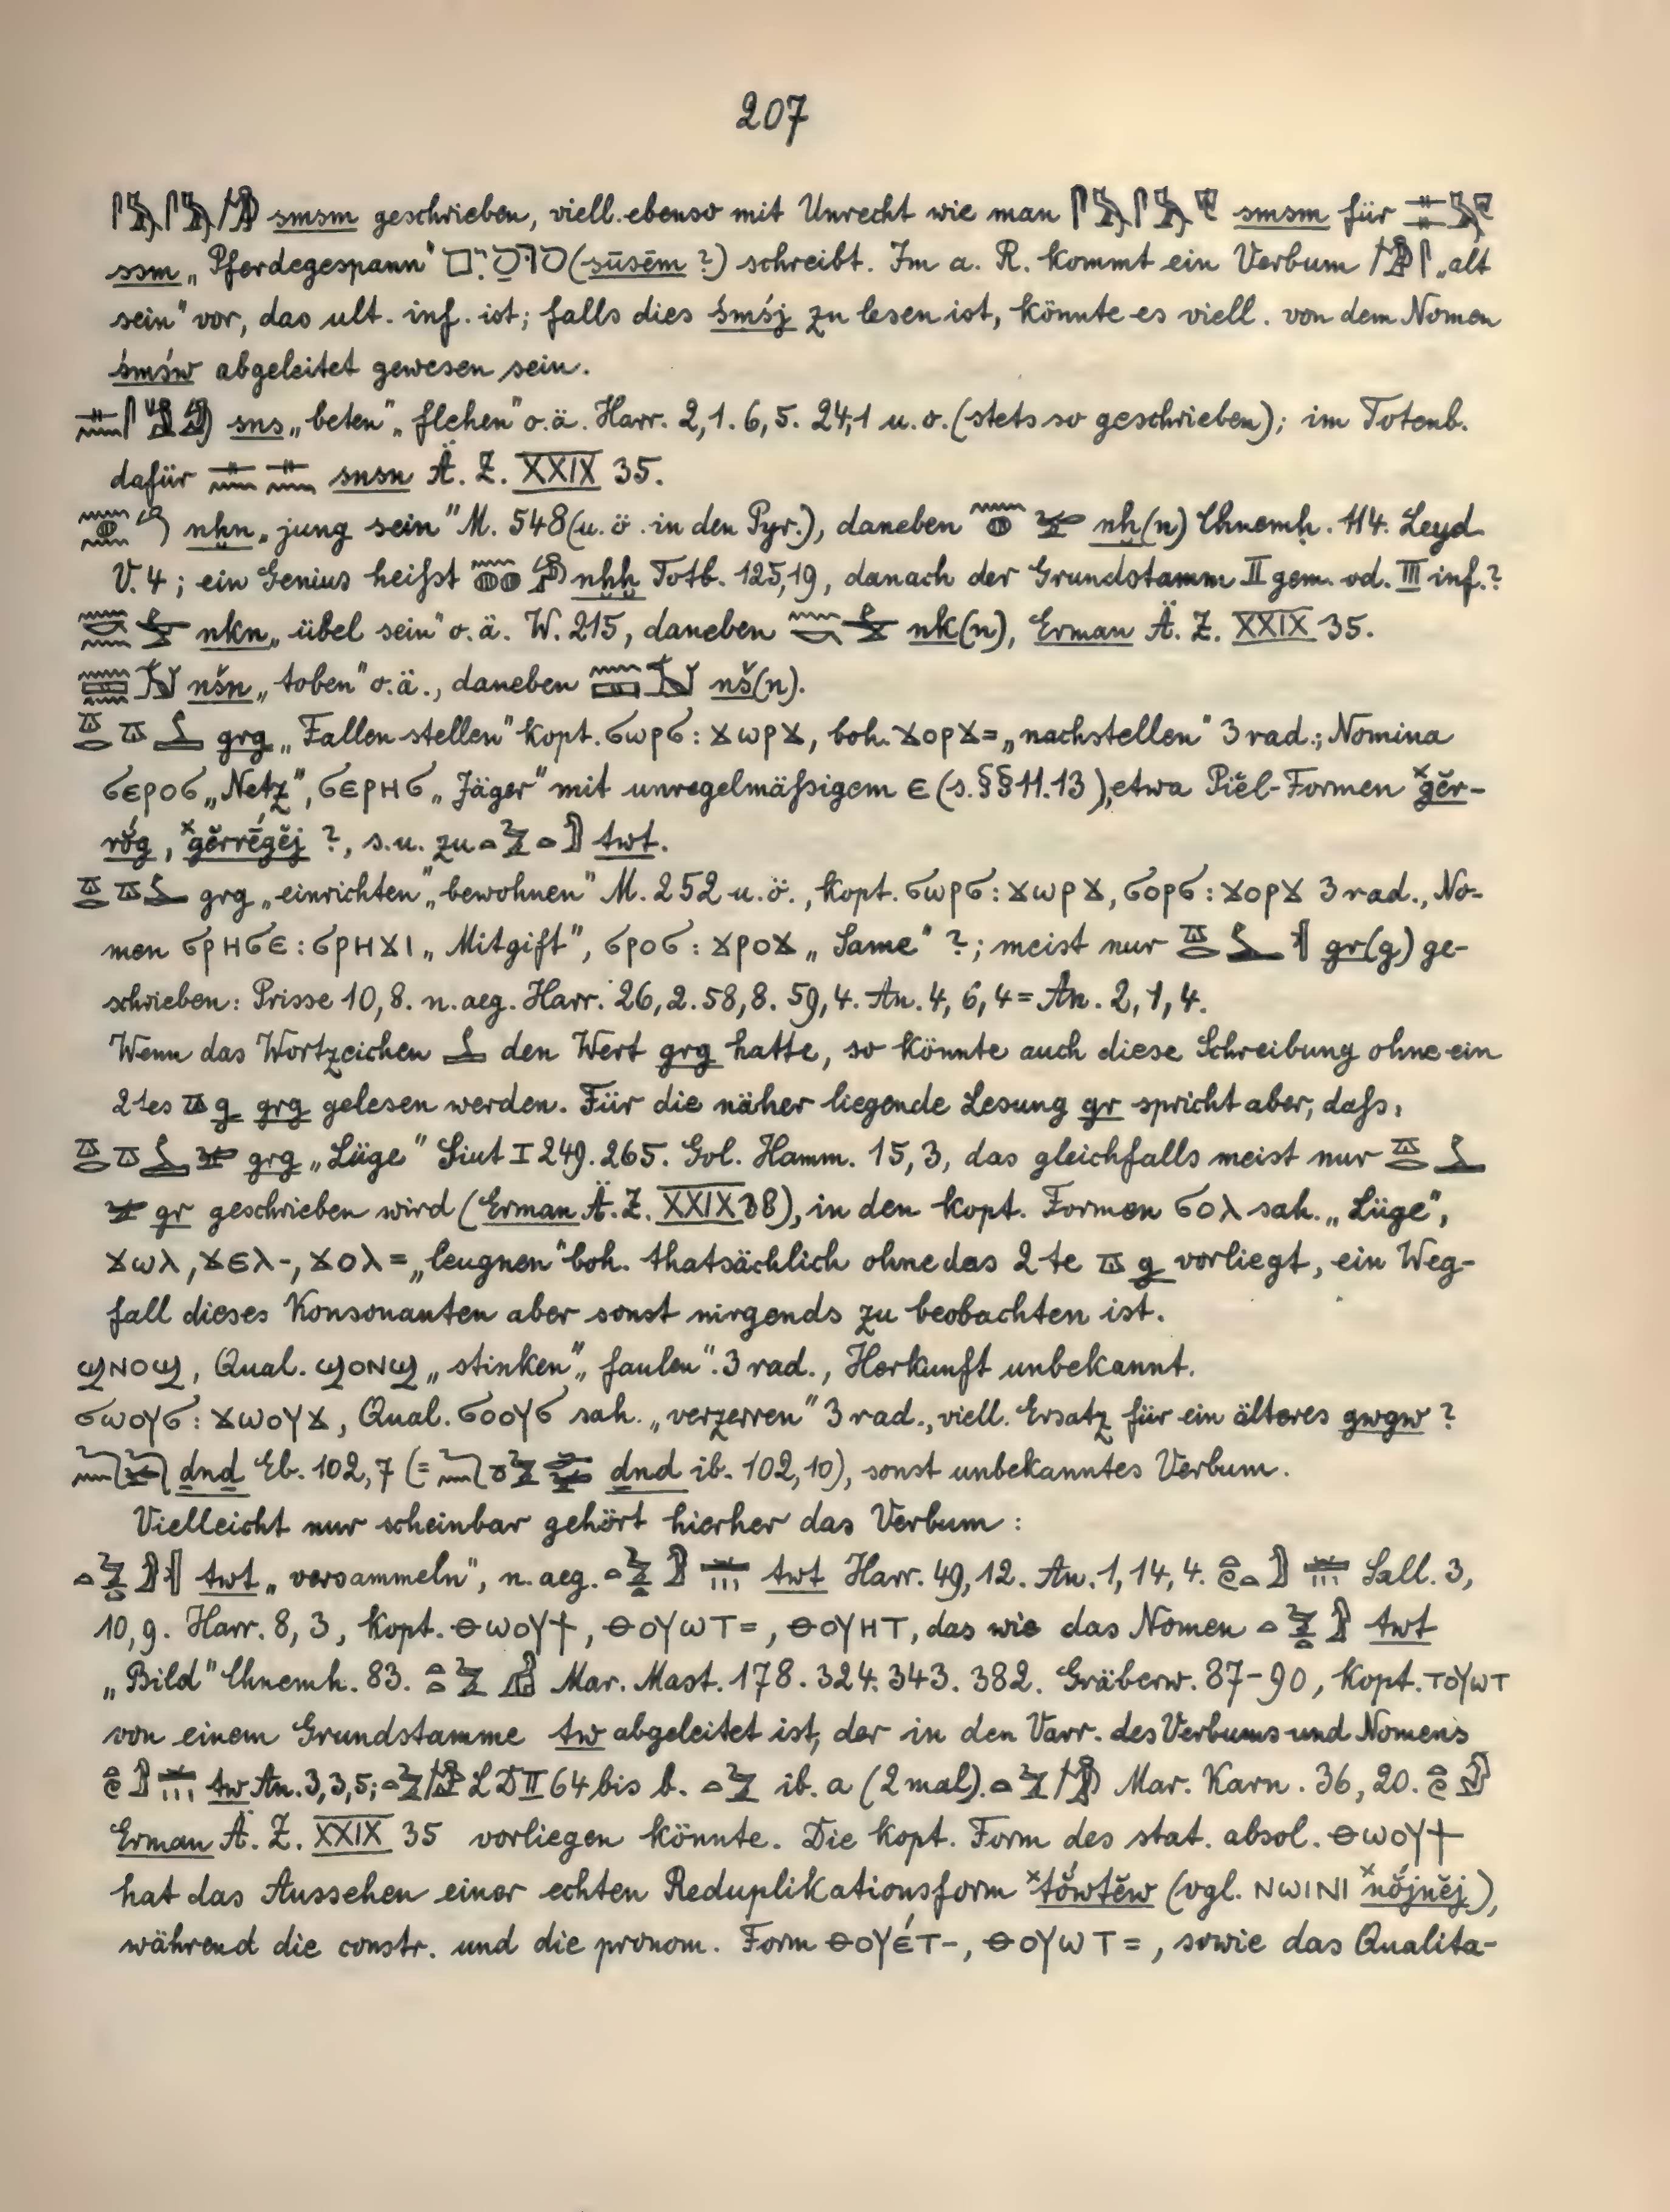 207
smsm geschrieben, viell. ebenso mit Unrecht wie man smsm für
ssm „Pferdegespann" (sūsēm ?) schreibt. Im a. R. kommt ein Verbum „alt
sein" vor, das ult. inf. ist; falls dies śmśj zu lesen ist, könnte es viell. von dem Nomen
śmśw abgeleitet gewesen sein.
sns „beten" „flehen" o.ä. Harr. 2,1. 6,5. 24,1 u. o. (stets so geschrieben); im Totenb.
dafür snsn Ä. Z. XXIX 35.
nḫn „jung sein" M. 548 (u. ö. in den Pyr.), daneben nḫ(n) Chnemḥ. 114. Leyd.
V. 4; ein Genius heißt nḫḫ Totb. 125,19, danach der Grundstamm II gem. od. III inf.?
nkn „übel sein" o. ä. W. 215, daneben nk(n), Erman Ä. Z. XXIX 35.
nšn „toben" o.ä., daneben nš(n).
grg „Fallen stellen" kopt. ϭωρϭ: ϫωρϫ, boh. ϫορϫ= „nachstellen" 3 rad.; Nomina
ϭⲉⲣⲟϭ „Netz", ϭⲉⲣⲏϭ „Jäger" mit unregelmäßigem ⲉ (s. §§ 11. 13), etwa Piʿēl-Formen ˣgĕr-
rŏ́g, ˣgĕrrḗgĕj ?, s. u. zu twt.
grg „einrichten" „bewohnen" M. 252 u. ö., kopt. ϭⲱⲣϭ: ϫⲱⲣϫ, ϭⲟⲣϭ: ϫⲟⲣϫ 3 rad., No-
men ϭⲣⲏϭⲉ: ϭⲣⲏϫⲓ „Mitgift", ϭⲣⲟϭ: ϫⲣⲟϫ „Same" ?; meist nur gr(g) ge-
schrieben: Prisse 10,8. n. aeg. Harr. 26,2. 58,8. 59,4. An. 4, 6, 4 = An. 2, 1, 4.
Wenn das Wortzeichen den Wert grg hatte, so könnte auch diese Schreibung ohne ein
2tes g grg gelesen werden. Für die näher liegende Lesung gr spricht aber, daß,
grg „Lüge" Siut I 249. 265. Gol. Hamm. 15, 3, das gleichfalls meist nur
gr geschrieben wird (Erman Ä. Z. XXIX 38), in den kopt. Formen ϭⲟⲗ sah. „Lüge",
ϫⲱⲗ, ϫⲉⲗ-, ϫⲟⲗ= „leugnen" boh. thatsächlich ohne das 2te g vorliegt, ein Weg-
fall dieses Konsonanten aber sonst nirgends zu beobachten ist.
ϣⲛⲟϣ, Qual. ϣⲟⲛϣ „stinken", „faulen". 3 rad., Herkunft unbekannt.
ϭⲱⲟⲩϭ: ϫⲱⲟⲩϫ, Qual. ϭⲟⲟⲩϭ sah. „verzerren" 3 rad., viell. Ersatz für ein älteres gwgw ?
dnd Eb. 102, 7 (= dnd ib. 102, 10), sonst unbekanntes Verbum.
Vielleicht nur scheinbar gehört hierher das Verbum:
twt „versammeln", n. aeg. twt Harr. 49, 12. An. 1, 14, 4. Sall. 3,
10, 9. Harr. 8, 3, kopt. ⲑⲱⲟⲩϯ, ⲑⲟⲩⲱⲧ=, ⲑⲟⲩⲏⲧ, das wie das Nomen twt
„Bild" Chnemh. 83. Mar. Mast. 178. 324. 343. 382. Gräberw. 87-90, kopt. ⲧⲟⲩⲱⲧ
von einem Grundstamme tw abgeleitet ist, der in den Varr. des Verbums und Nomens
tw An. 3, 3, 5; LD II 64 bis b. ib. a (2 mal). Mar. Karn. 36, 20.
Erman Ä. Z. XXIX 35 vorliegen könnte. Die kopt. Form des stat. absol. ⲑⲱⲟⲩϯ
hat das Aussehen einer echten Reduplikationsform ˣtṓwtĕw (vgl. ⲛⲱⲓⲛⲓ ˣnṓjnĕj),
während die constr. und die pronom. Form ⲑⲟⲩⲉ́ⲧ-, ⲑⲟⲩⲱⲧ=, sowie das Qualita-